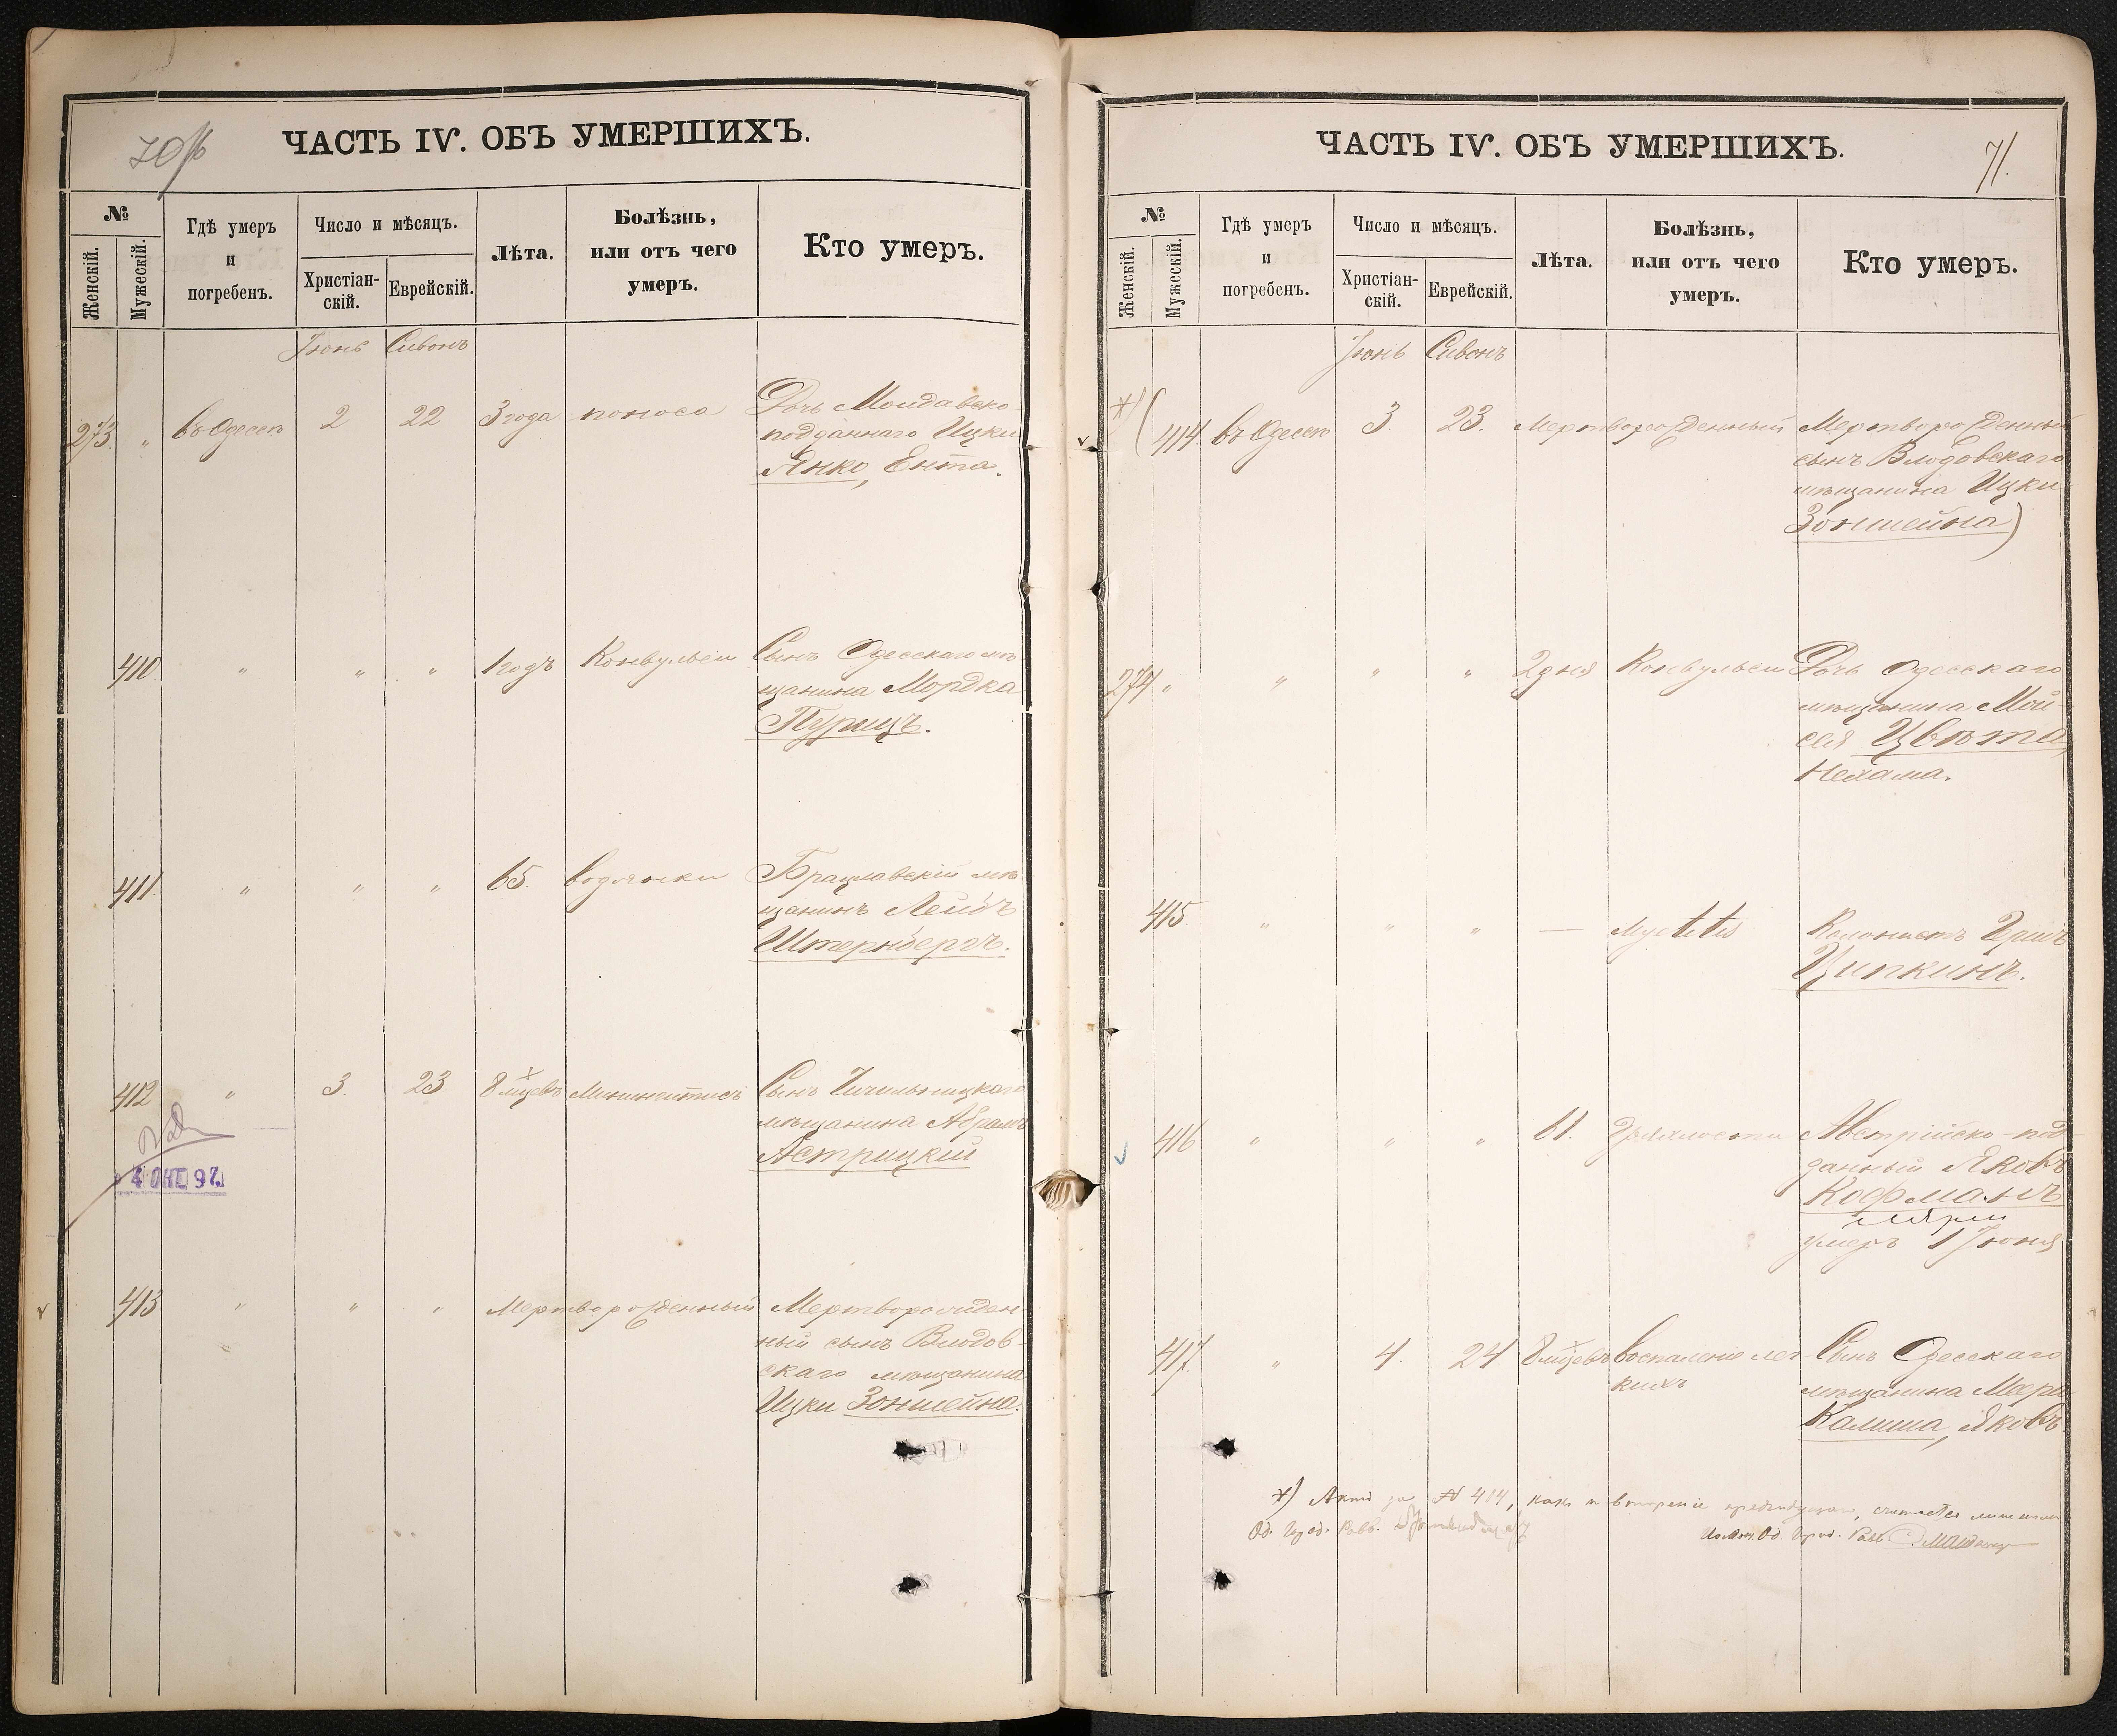 70/б
ЧАСТЬ IV. ОБЪ УМЕРШИХЪ.
№
Женскій.
Мужескій.
Гдѣ умеръ
и
погребенъ.
Число и мѣсяцъ.
Христіан-
скій.
Еврейскій.
Лѣта.
Болѣзнь,
или отъ чего
умеръ.
Кто умеръ.
Іюнь Сивонъ
273. " въ Одессѣ 2 22 3 года поноса Дочь Молдавско-
подданнаго Ицки
Янко, Ента.
410 " " " 1 годъ Конвульсіи Сынъ Одесскаго мѣ
щанина Мордка
Пурицъ.
411. " " " 65. водянки Брацлавскій мѣ
щанинъ Лейбъ
Штернбергъ.
412 " 3. 23 8 мцевъ Менингитисъ Сынъ
мѣщанина Абрамъ
Астрицкій
4 ОКТ 97
413 " " " Мертворожденный Мертворожден-
ный сынъ Влодов-
скаго мѣщанина
Ицки Зоншейна.
ЧАСТЬ IV. ОБЪ УМЕРШИХЪ.
71.
№
Женскій.
Мужескій.
Гдѣ умеръ
и
погребенъ.
Число и мѣсяцъ.
Христіан-
скій.
Еврейскій.
Лѣта.
Болѣзнь,
или отъ чего
умеръ.
Кто умеръ.
Іюнь Сивонъ
*) ( 414. въ Одессѣ 3. 23. Мертворожденный Мертворожденный
сынъ Влодовскаго
мѣщанина Ицки
Зоншейна)
274 " " " " 2 дня Конвульсіи Дочь Одесскаго
мѣщанина Мой-
сея Цвѣта,
Нехама.
415. " " " — Колонистъ Гершъ
Ципкинъ.
416 " " " 61. Дряхлости Австрійско-под-
данный Яковъ
Кофманъ
умеръ 1 Іюня
417. " 4. 24. 8 мцевъ воспаленіе лег-
кихъ Сынъ Одесскаго
мѣщанина Меера
Калиша, Яковъ
*) Актъ за № 414, какъ повтореніе предыдущаго, считается лишнимъ
Од. Гор. Равв.
Од. Гор. Равв.